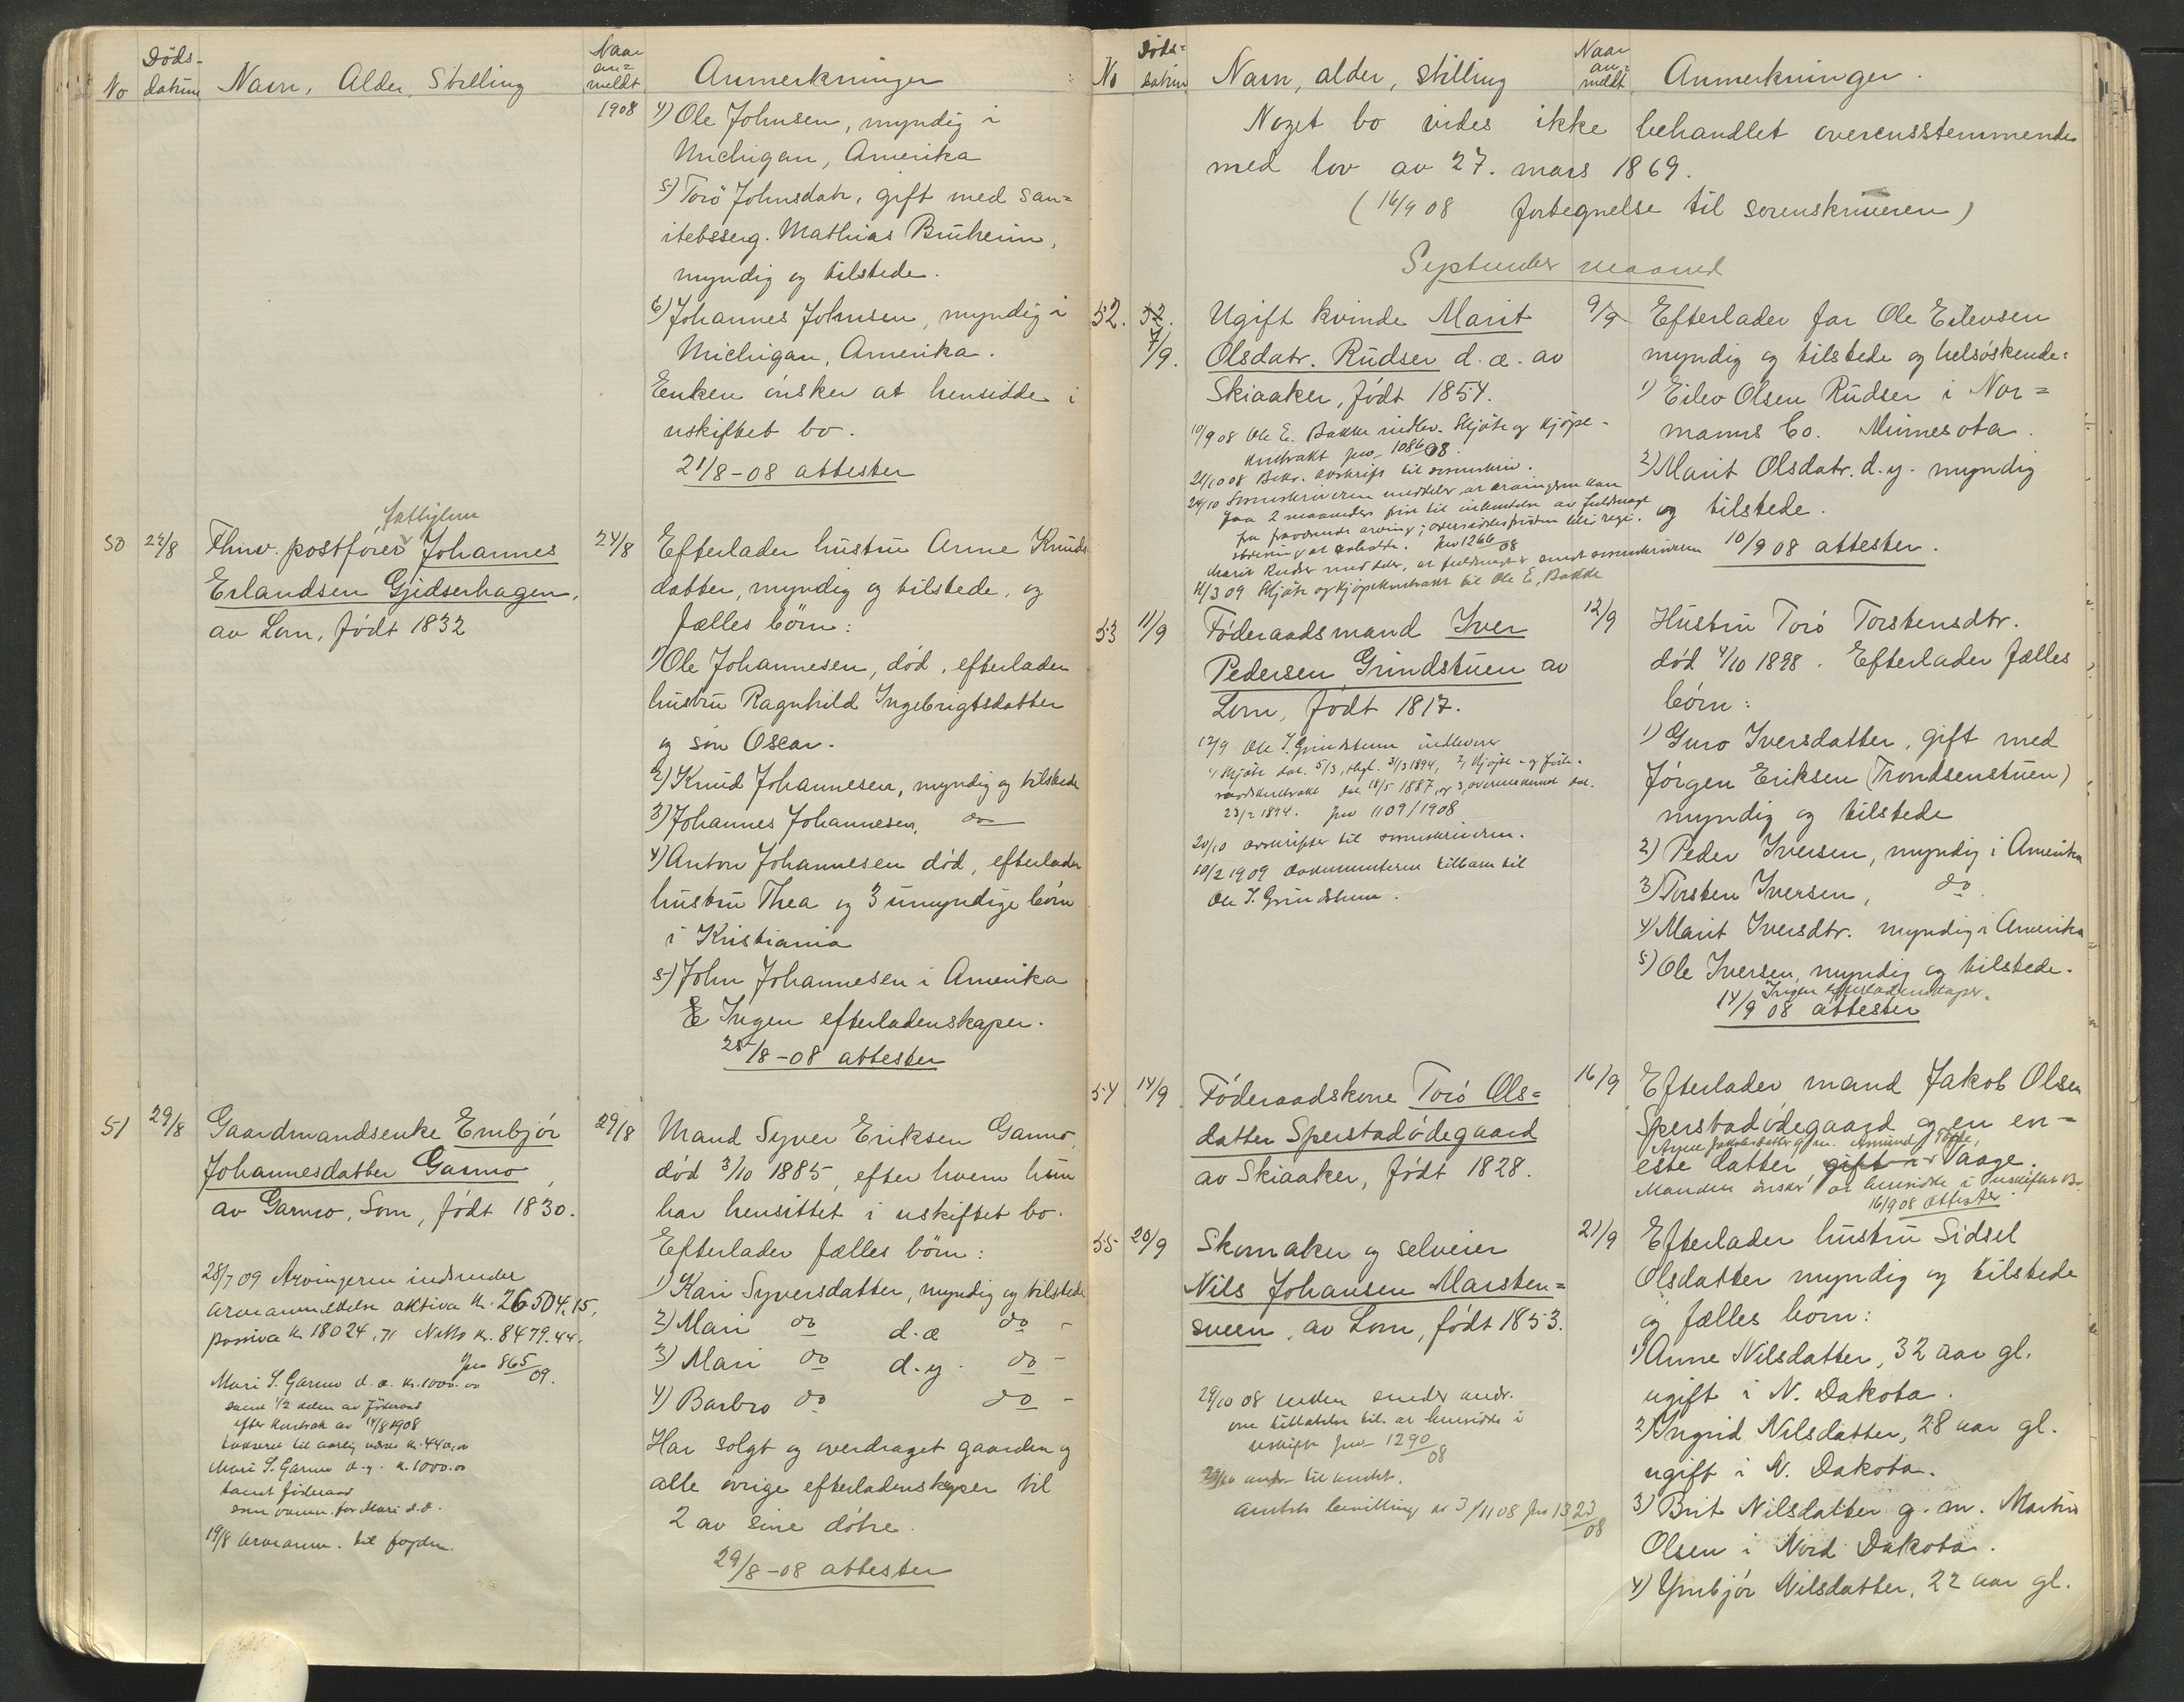 No
Döds-
datum
Navn, Alder, Stilling
Naar
an=
meldt
Anmerkninger
1908
4) Ole Johnsen, myndig i
Michigan, Amerika
5) Torö Johnsdatr, gift med san=
itetsserg. Mathias Bruheim,
myndig og tilstede.
6) Johannes Johnsen, myndig i
Michigan, Amerika.
Enken önsker at hensidde i
uskiftet bo.
21/8-08 attester
fattiglem
50 22/8 Fhnv. postförer Johannes
Erlandsen Gjedserhagen,
av Lom, födt 1832
24/8 Efterlader hustru Anne Knuds
datter, myndig og tilstede, og
fælles börn:
1) Ole Johannesen, död, efterlader
hustru Ragnhild Ingebrigtsdatter
og sön Oscar.
2) Knud Johannesen, myndig og tilstede
3) Johannes Johannesen, do
4) Anton Johannesen död, efterlader
hustru Thea og 3 umyndige börn
i Kristiania
5) John Johannesen i Amerika
E Ingen efterladenskaper.
25/8-08 attester
51 29/8 Gaardmandsenke Embjör
Johannesdatter Garmo,
av Garmo, Lom, födt 1830.
28/7 09 Arvingerne indsender
arveanmeldelse aktiva kr. 26504.15,
passiva kr. 18024,71 Netto kr. 8479.44.
Jno 865/09.
Mari S. Garmo d.æ. kr. 1000.00
samt 1/2 delen av föderaad
efter kontrakt av 14/8 1908
takseret til aarlig værdi kr. 440,00
Mari S. Garmo d.y. kr. 1000.00
samt föderaad
som ovenn. for Mari d.æ.
19/8 arveanm. til fogden.
29/8 Mand Syver Eriksen Garmo,
död 3/10 1885, efter hvem hun
har hensittet i uskiftet bo.
Efterlader fælles börn:
1) Kari Syversdatter, myndig og tilstede
2) Mari do d.æ do -
3) Mari do d.y. do -
4) Barbro do do -
Har solgt og overdraget gaarden og
alle övrige efterladenskaper til
2 av sine dötre.
29/8-08 attester
No
Döds=
datum
Navn, alder, stilling
Naar
an=
meldt
Anmerkninger.
Noget bo vides ikke behandlet overensstemmende
med lov av 27. mars 1869.
(16/9 08 fortegnelse til sorenskriveren)
September maaned
52. 52.
7/9. Ugift kvinde Marit
Olsdatr. Rudser d.æ. av
Skiaaker, födt 1854.
10/9 08 Ole E. Bakke indlev. Skjöte og kjöpe-
kontrakt jno 1086/08.
21/10 08 Bekr. avskrift til sorenskriv.
24/10 Sorenskriveren meddeler at arvingerne kan
faa 2 maaneders frist til indsendelse av fuldmagt
fra fraværende arving;
jno 1266/08
Marit Rudser meddeler, at fuldmagt er sendt sorenskriveren
11/3 09 Skjöte og kjöpekontrakt til Ole E. Bakke
9/9 Efterlader far Ole Eilevsen
myndig og tilstede og helsöskende:
1) Eilev Olsen Rudser i Nor=
manns Co. Minnesota.
2) Marit Olsdatr. d.y. myndig
og tilstede.
10/9 08 attester.
53 11/9 Föderaadsmand Iver
Pedersen Grindstuen av
Lom, födt 1817.
12/9 Ole I. Grindstuen indleverer
1, Skjöte dat. 5/3, thgl. 31/3 1894, 2, kjöpe- og föde-
raadskontrakt dat 18/5 1887, og 3, overenskomst dat.
23/2 1894. jno 1109/1908
20/10 avskrifter til sorenskriveren.
10/2 1909 dokumenterne tilbake til
Ole I. Grindstuen.
12/9 Hustru Torö Torstensdtr.
död 4/10 1898. Efterlader fælles
börn:
1) Guro Iversdatter, gift med
Jörgen Eriksen (Trondsenstuen)
myndig og tilstede
2) Peder Iversen, myndig i Amerika
3) Torsten Iversen, do.
4) Marit Iversdtr. myndig i Amerika
5) Ole Iversen, myndig og tilstede.
Ingen efterladenskaper.
14/9 08 attester
54 14/9 Föderaadskone Torö Ols=
datter Sperstadödegaard
av Skiaaker, födt 1828.
16/9 Efterlader mand Jakob Olsen
Sperstadödegaard og en en-
Anne Jakobsdatter g.m. Amund Toffe,
este datter gift i Vaage.
Manden önsker at hensidde i uskiftet Bo.
16/9 08 attester
55 20/9 Skomaker og selveier
Nils Johansen Marsten=
sveen, av Lom, födt 1853.
29/10 08 enken sender andr.
om tilladelse til at hensidde i
uskifte jno 1290/08
29/10 andr til amtet.
Amtets bevilling av 3/11 08 jno 1323/08
21/9 Efterlader hustru Sidsel
Olsdatter myndig og tilstede
og fælles börn:
1) Anne Nilsdatter, 32 aar gl.
ugift i N. Dakota.
2) Ingrid Nilsdatter, 28 aar gl.
ugift i N. Dakota.
3) Brit Nilsdatter g.m. Martin
Olsen i Nord Dakota.
4) Ymbjör Nilsdatter, 22 aar gl.